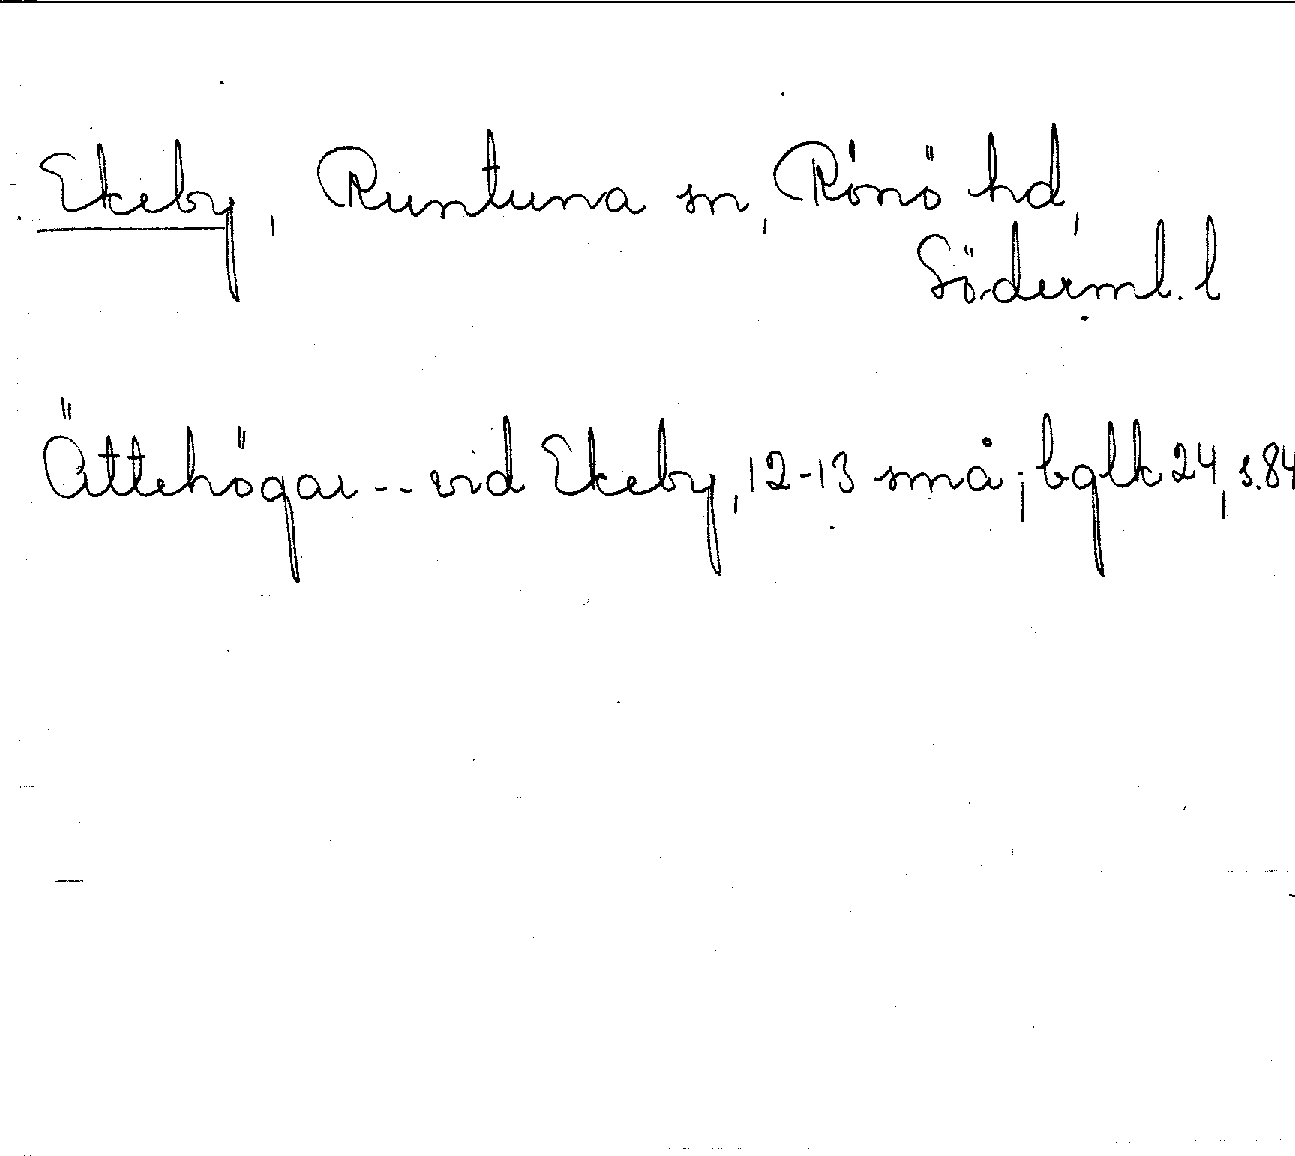 Ekeby, Runtuna sn, Rönö hd,
Söderml. l
Ättehögar -- vid Ekeby, 12-13 små; bglk 24, s.84